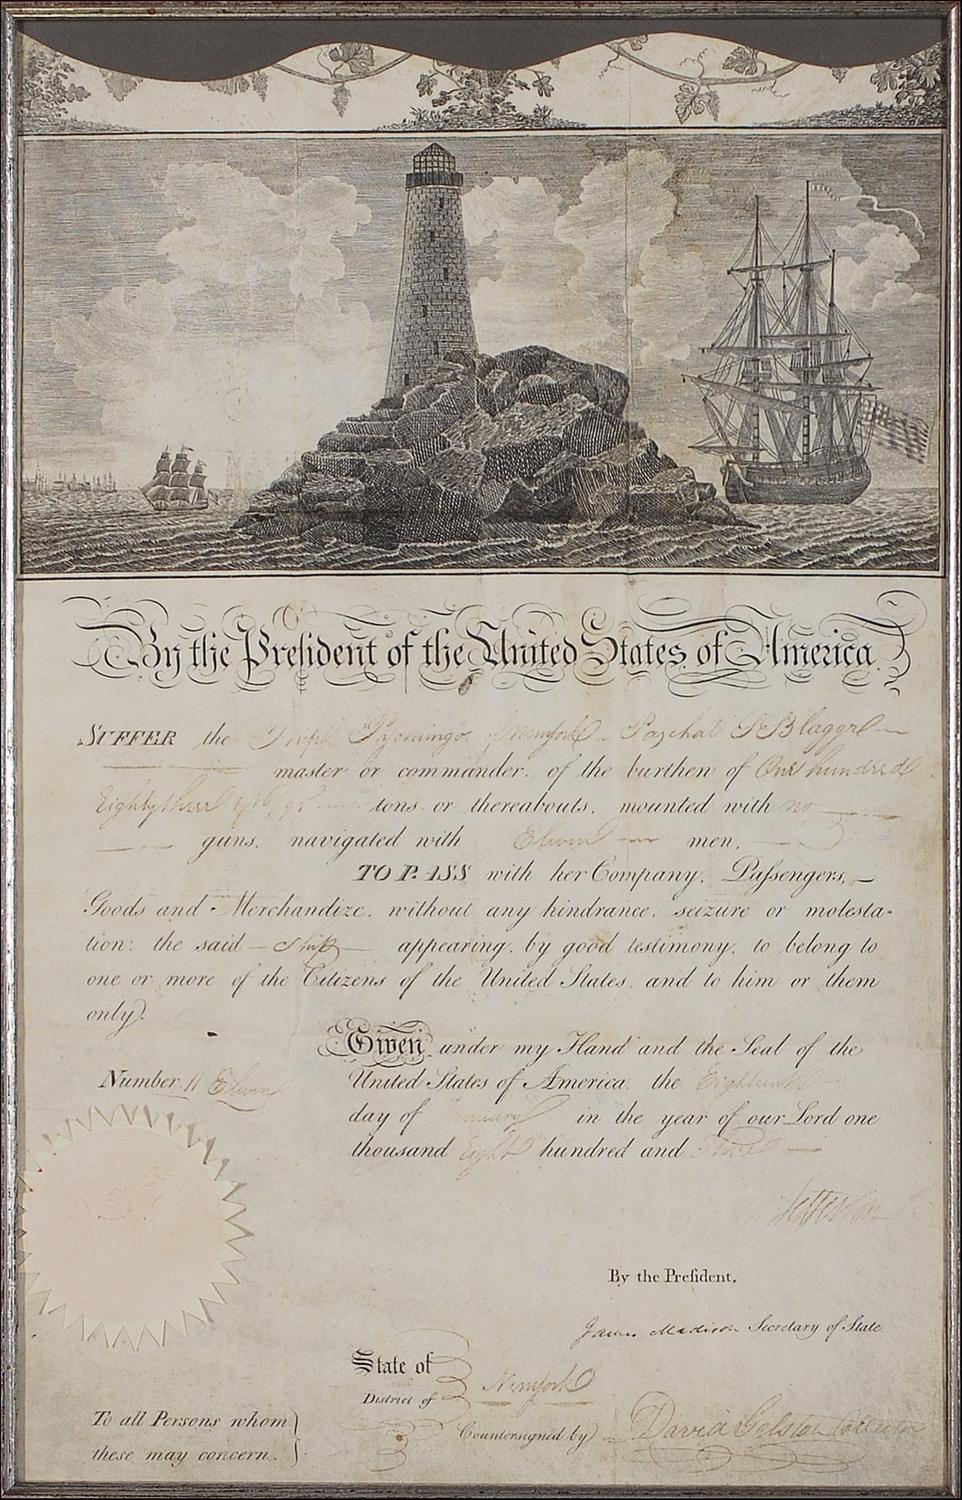 By the President of the United States of America
SUFFER the Ship Pyomingo of Newyork Paschal
master or commander, of the burthen of One hundred
Eighty three tons or thereabouts, mounted with no
guns, navigated with Eleven men,
TO PASS with her Company, Paſsengers,
Goods and Merchandize, without any hindrance, seizure or molesta-
tion: the said Ship appearing, by good testimony, to belong to
one or more of the Citizens of the United States, and to him or them
only.
Given under my Hand and the Seal of the
Number 11 Eleven
United States of America, the Eighteenth
day of January in the year of our Lord one
thousand Eight hundred and Three
Jefferson
By the Preſident.
James Madison Secretary of State
State of
District of Newyork
To all Persons whom
Countersigned by David Gelston Collector
these may concern.